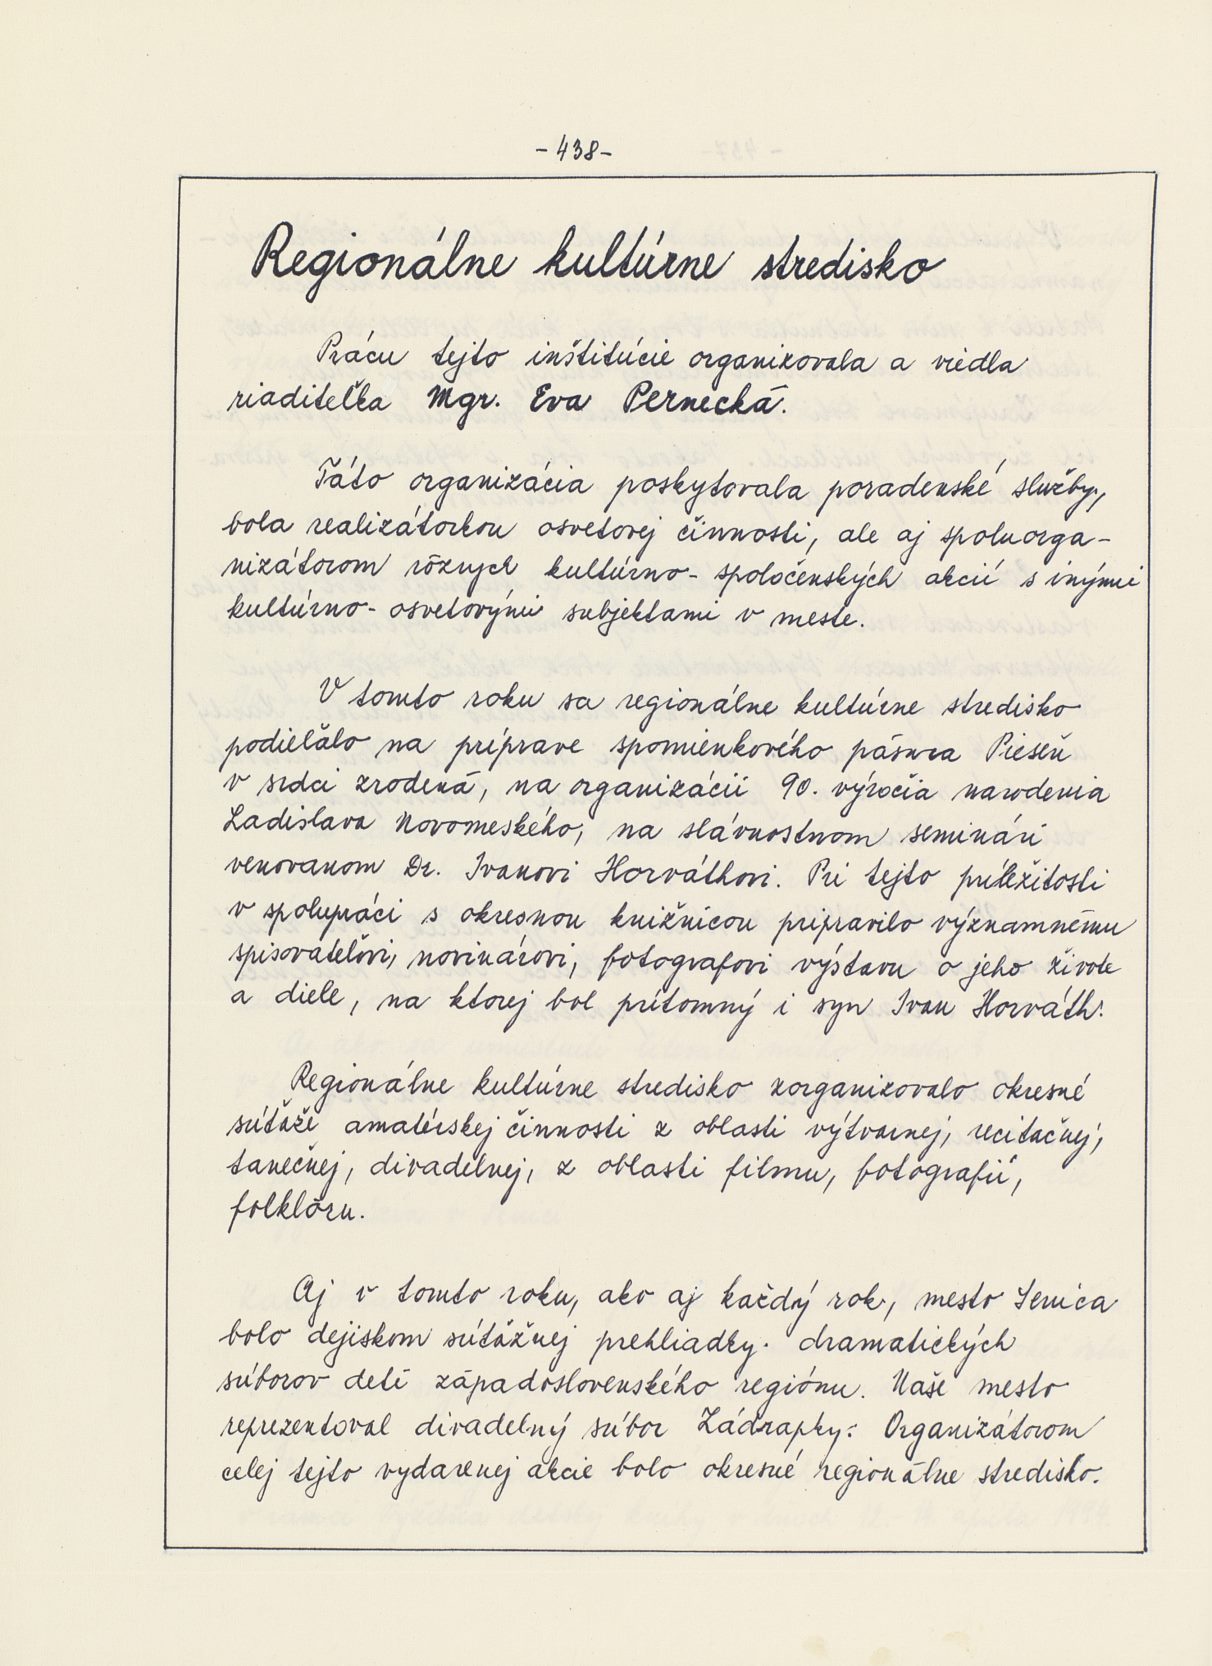 -438-
Regionálne kultúrne stredisko
Prácu tejto inštitúcie organizovala a viedla
riaditeľka Mgr. Eva Pernecká.
Táto organizácia poskytovala poradenské služby,
bola realizátorkou osvetovej činnosti, ale aj spoluorga-
nizátorom rôznych kultúrno-spoločenských akcií s inými
kultúrno-osvetovými subjektami v meste.
V tomto roku sa regionálne kultúrne stredisko
podieľalo na príprave spomienkového pásma Pieseň
v srdci zrodená, na organizácii 90. výročia narodenia
Ladislava Novomeského, na slávnostnom seminári
venovanom Dr. Ivanovi Horváthovi. Pri tejto príležitosti
v spolupráci s okresnou knižnicou pripravilo významnému
spisovateľovi, novinárovi, fotografovi výstavu o jeho živote
a diele, na ktorej bol prítomný i syn Ivan Horváth.
Regionálne kultúrne stredisko zorganizovalo okresné
súťaže amatérskej činnosti z oblasti výtvarnej, recitačnej,
tanečnej, divadelnej, z oblasti filmu, fotografií,
folklóru.
Aj v tomto roku, ako aj každý rok, mesto Senica
bolo dejiskom súťažnej prehliadky. dramatických
súborov detí západoslovenského regiónu. Naše mesto
reprezentoval divadelný súbor Zádrapky. Organizátorom
celej tejto vydarenej akcie bolo okresné regionálne stredisko.